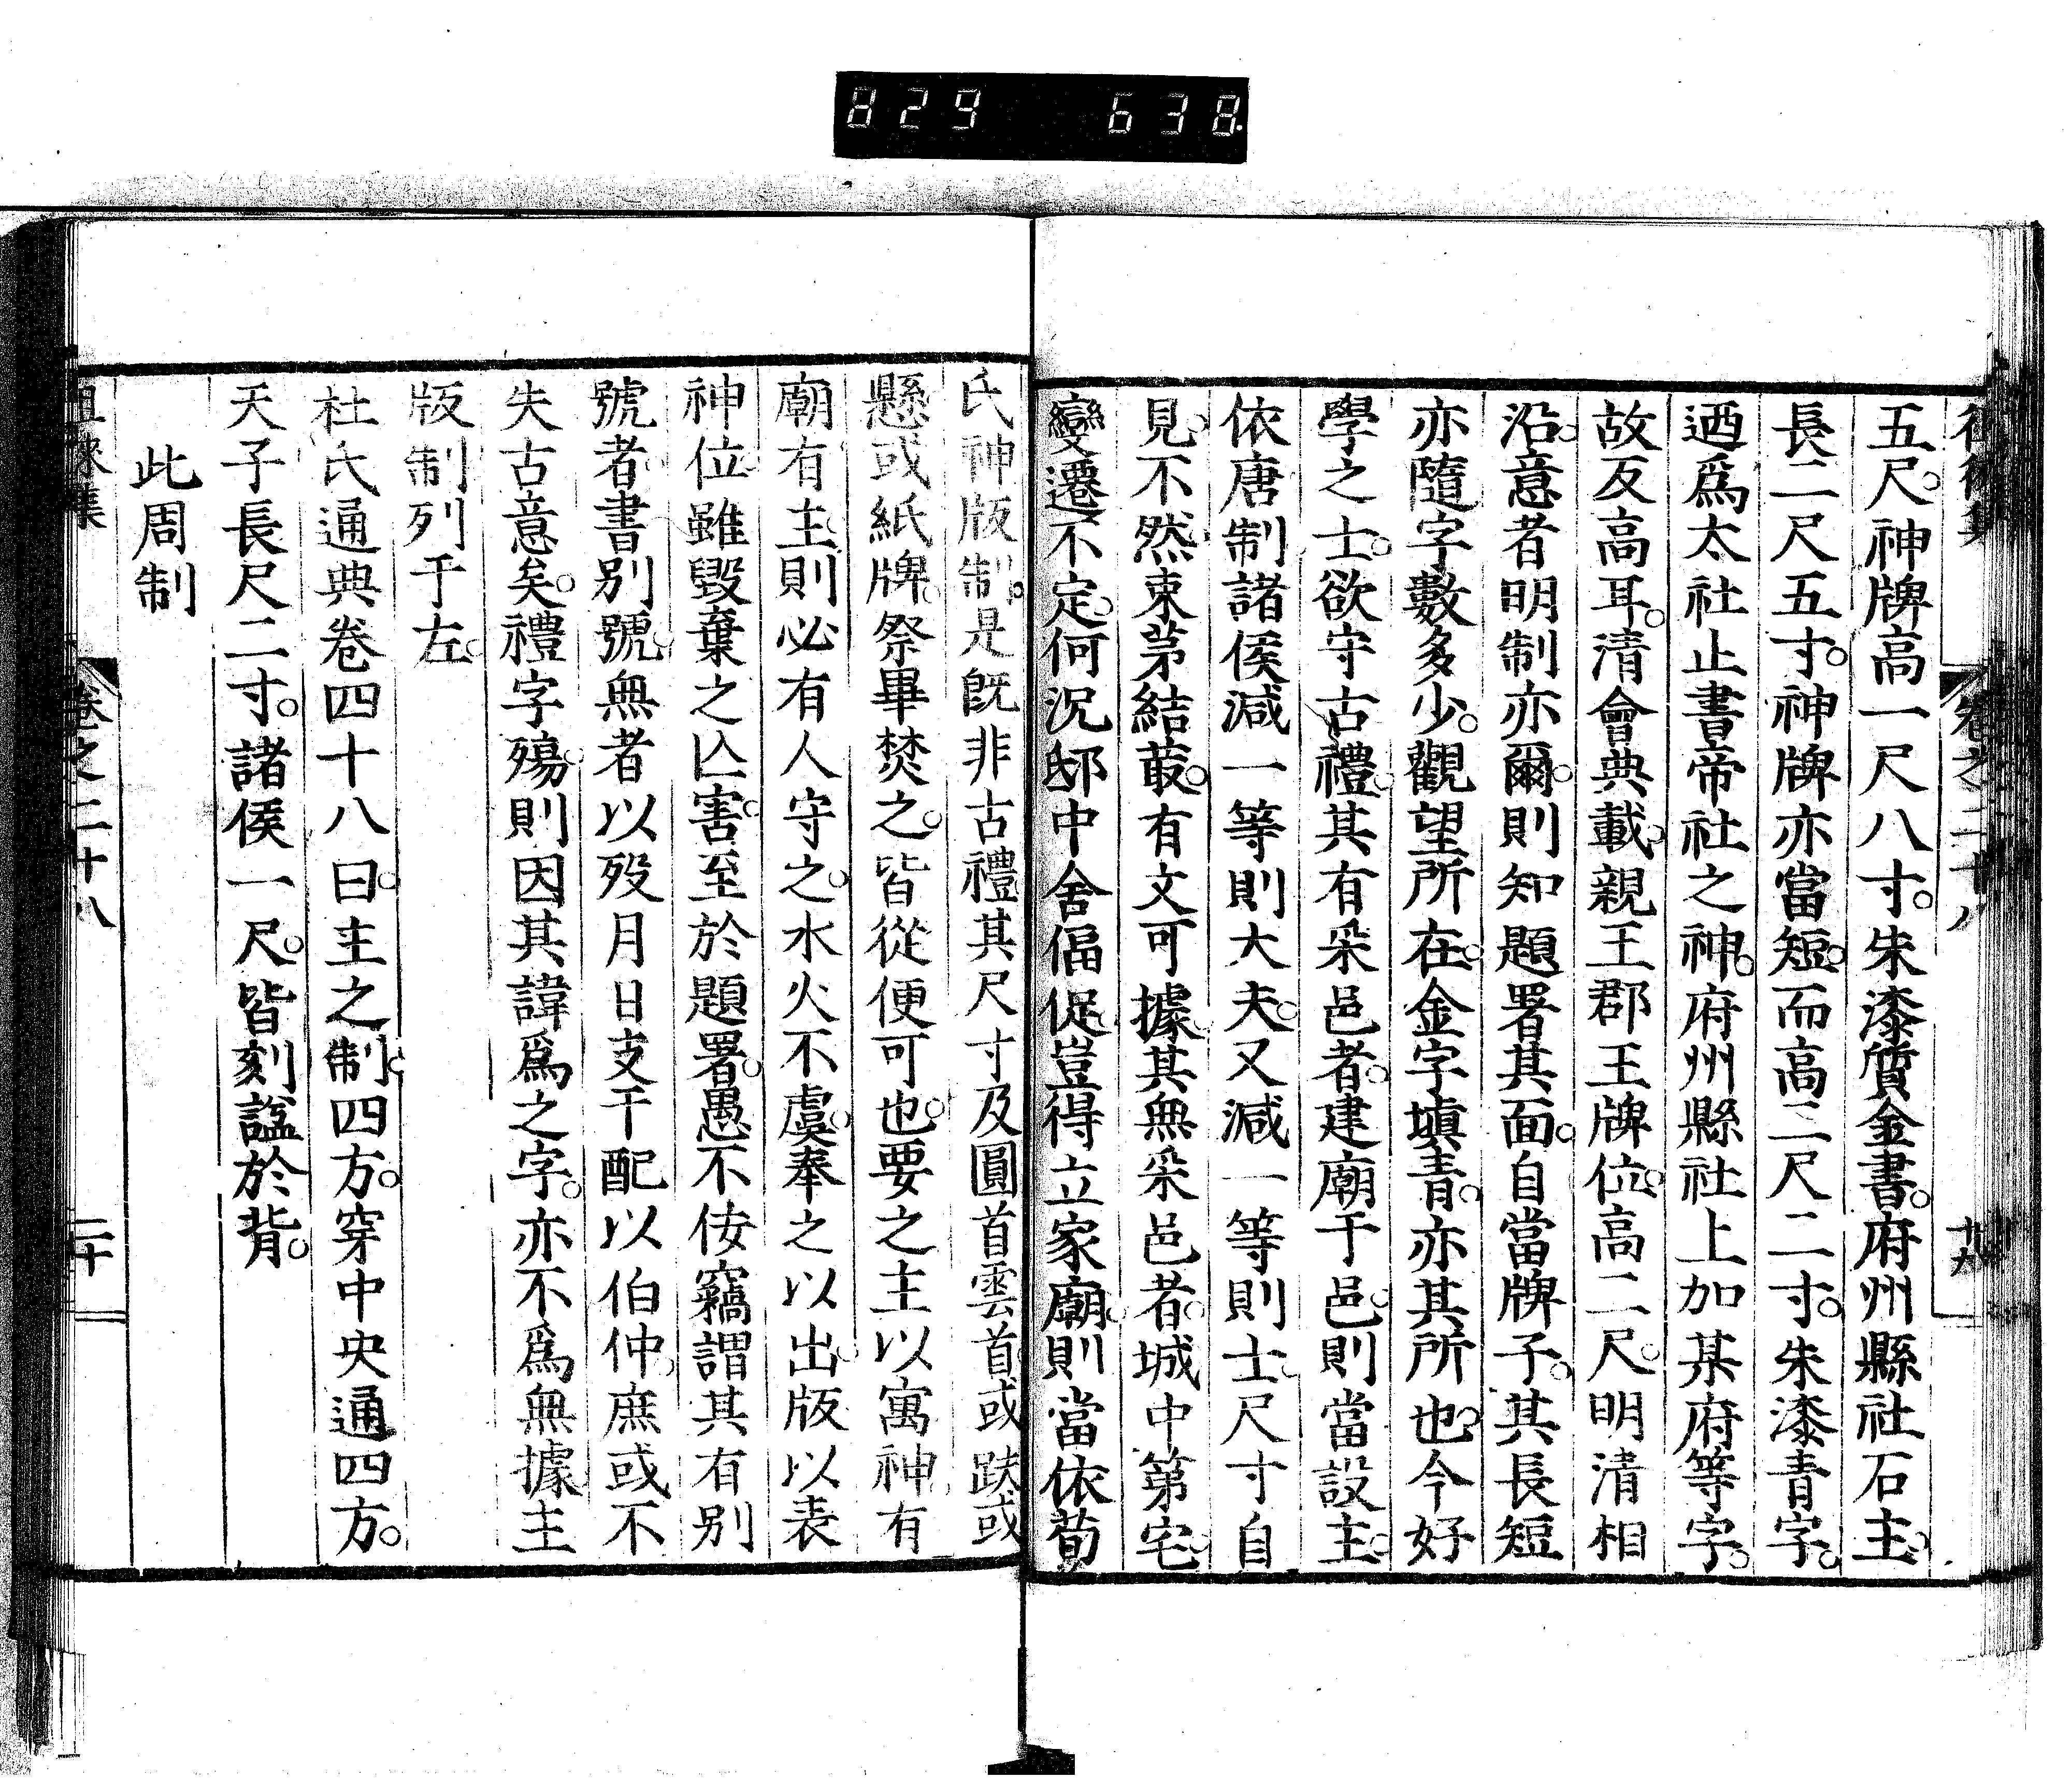 829 638
五尺。神牌高一尺八寸。朱漆質金書。府州縣社石主。
長二尺五寸。神牌亦當短。而高二尺二寸。朱漆青字。
迺爲太社止書帝社之神。府州縣社上加某府等字。
故反高耳。清會典載。親王郡王牌位。高二尺。明清相
沿。意者明制亦爾。則知題署其面。自當牌子。其長短
亦隨字數多少。觀望所在。金字塡青。亦其所也。今好
學之士。欲守古禮。其有采邑者。建廟于邑。則當設主。
依唐制諸侯減一等則大夫。又減一等則士。尺寸自
見。不然。束茅結菆。有文可據。其無采邑者。城中第宅。
變遷不定。何況邸中舍偪促。豈得立家廟。則當依荀
氏神版制。是旣非古禮其尺寸及圓首雲首或趺或
懸或紙牌。祭畢焚之。皆從便可也。要之主以寓神。有
廟有主。則必有人守之。水火不虞。奉之以出。版以表
神位。雖毀棄之亾害。至於題署。愚不佞竊謂其有別
號者。書別號。無者以歿月日支干配以伯仲。庶或不
失古意矣。禮字殤。則因其諱爲之字。亦不爲無據。主
版制列于左。
杜氏通典卷四十八曰。主之制。四方。穿中央通四方。
天子長尺二寸。諸侯一尺。皆刻諡於背。
此周制
徂徠集 卷之二十八 二十